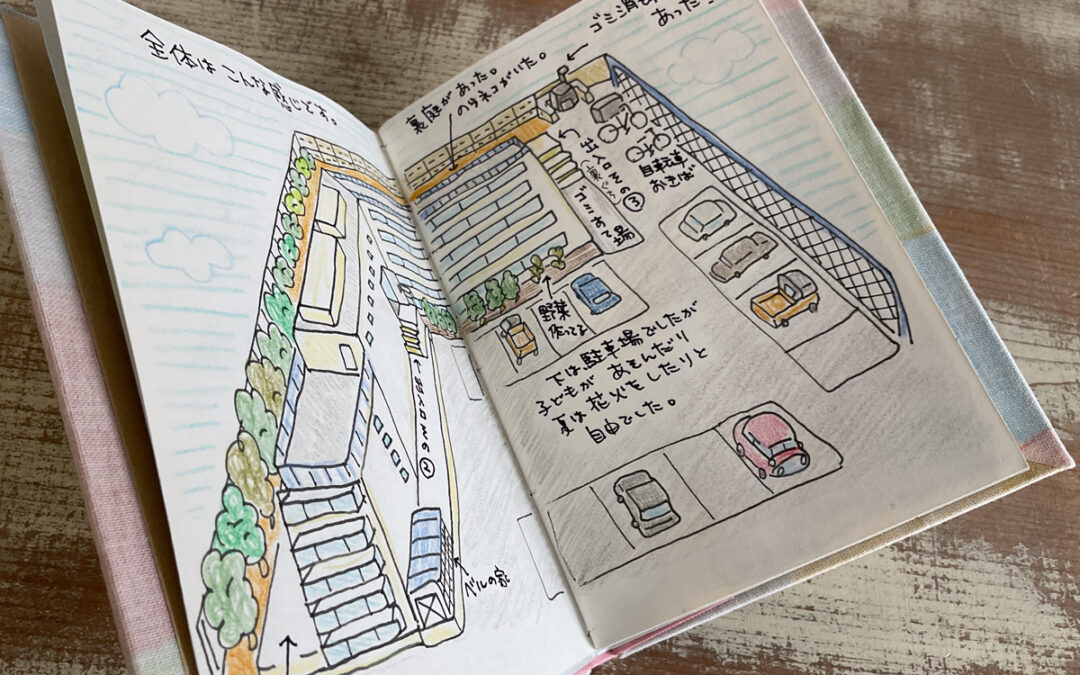 全体は こんな感じ
裏庭があった。
のらネコがいた。
ゴミ
あった
出入口その③
(裏ぐち)
ゴミすて場
自転車
おきば
野菜
作ってる
下は駐車場でしたが
子どもが あそんだり
夏は 花火をしたりと
自由でした。
出入口その②
ベルの家